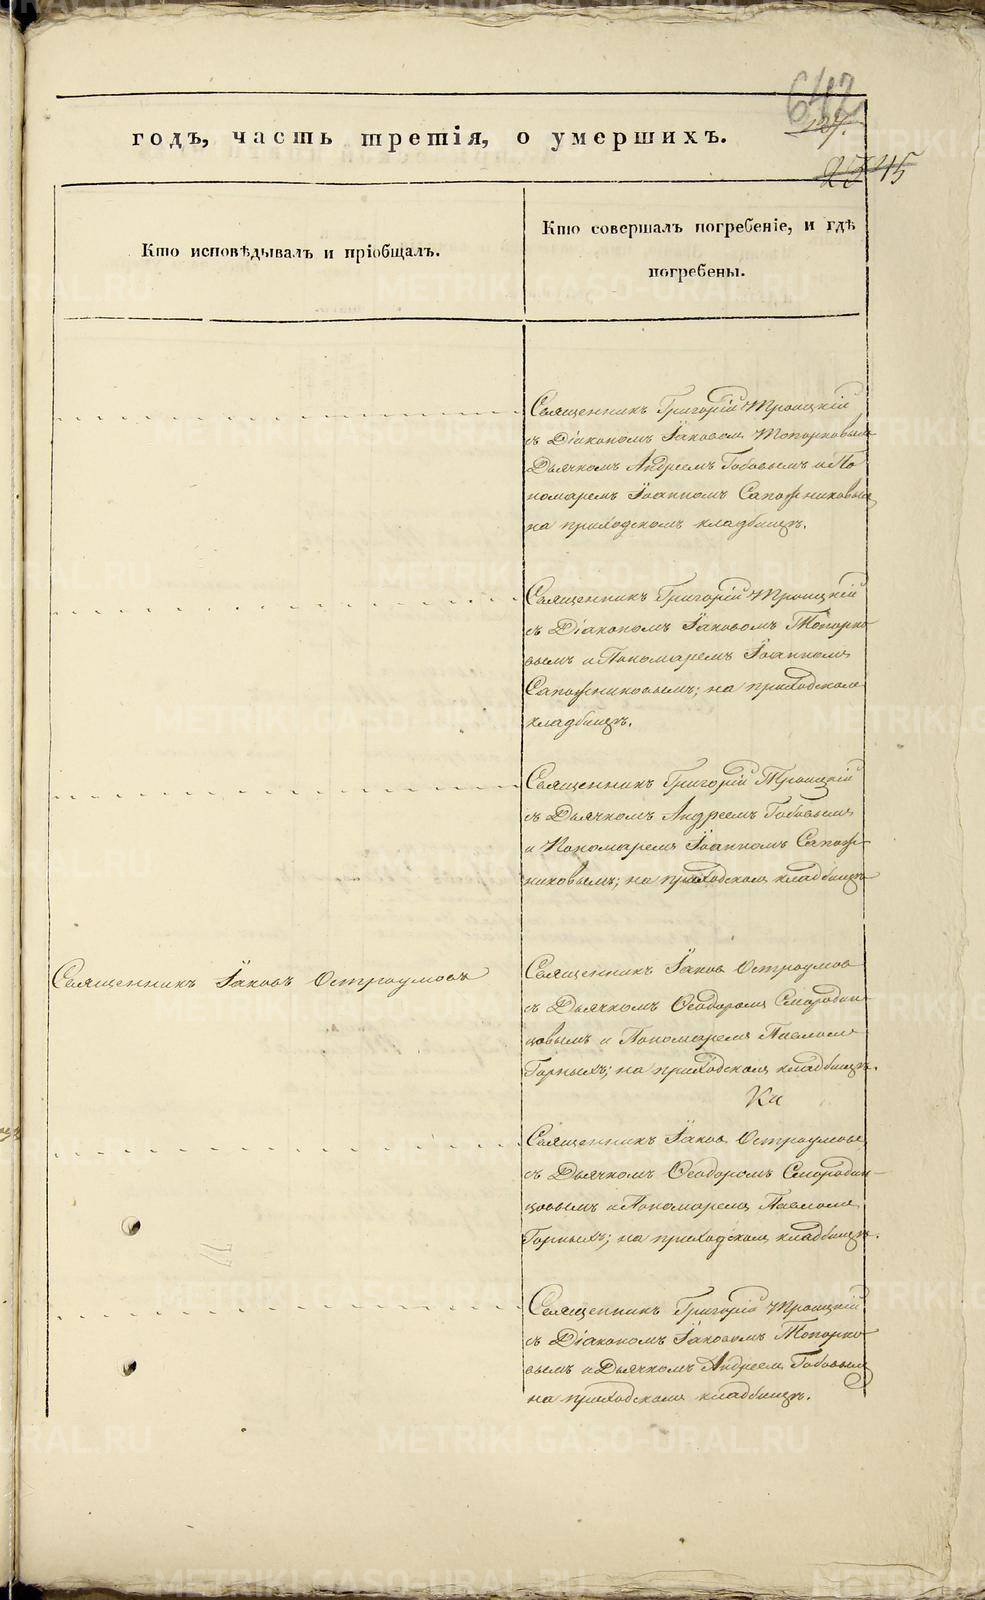 642
годъ, часть третія, о умершихъ.
2345
Кто исповѣдывалъ и пріобщалъ.
Кто совершалъ погребеніе, и гдѣ
погребены.
Священникъ Григорій Троицкій
съ Діакономъ Іаковом Топорковым
Дьячкомъ Андреемъ Бабовымъ и По
номаремъ Іоанномъ Сапожниковым
на приходскомъ кладбищѣ.
Священникъ Григорій Троицкій
съ Діакономъ Іаковомъ Топорко
вымъ и Пономаремъ Іоанномъ
Сапожниковымъ; на приходскомъ
кладбищѣ.
Священникъ Григорій Троицкій
съ Дьячкомъ Андреемъ Бабовымъ
и Пономаремъ Іоанномъ Сапож
никовымъ; на приходскомъ кладбищѣ
Священникъ Іаковъ Остроумовъ
Священникъ Іаков Остроумов
съ Дьячкомъ Ѳеодоромъ Смородин
цовымъ и Пономаремъ Павломъ
Горныхъ; на приходскомъ кладбищѣ.
Священникъ Іаков Остроумовъ
съ Дьячкомъ Ѳеодоромъ Смородин
цовымъ и Пономаремъ Павломъ
Горныхъ; на приходскомъ кладбищѣ.
Священникъ Григорій Троицкій
съ Діакономъ Іаковомъ Топорко
вымъ и Дьячкомъ Андреем Бабовым
на приходскомъ кладбищѣ.
METRIKI.GASO-URAL.RU